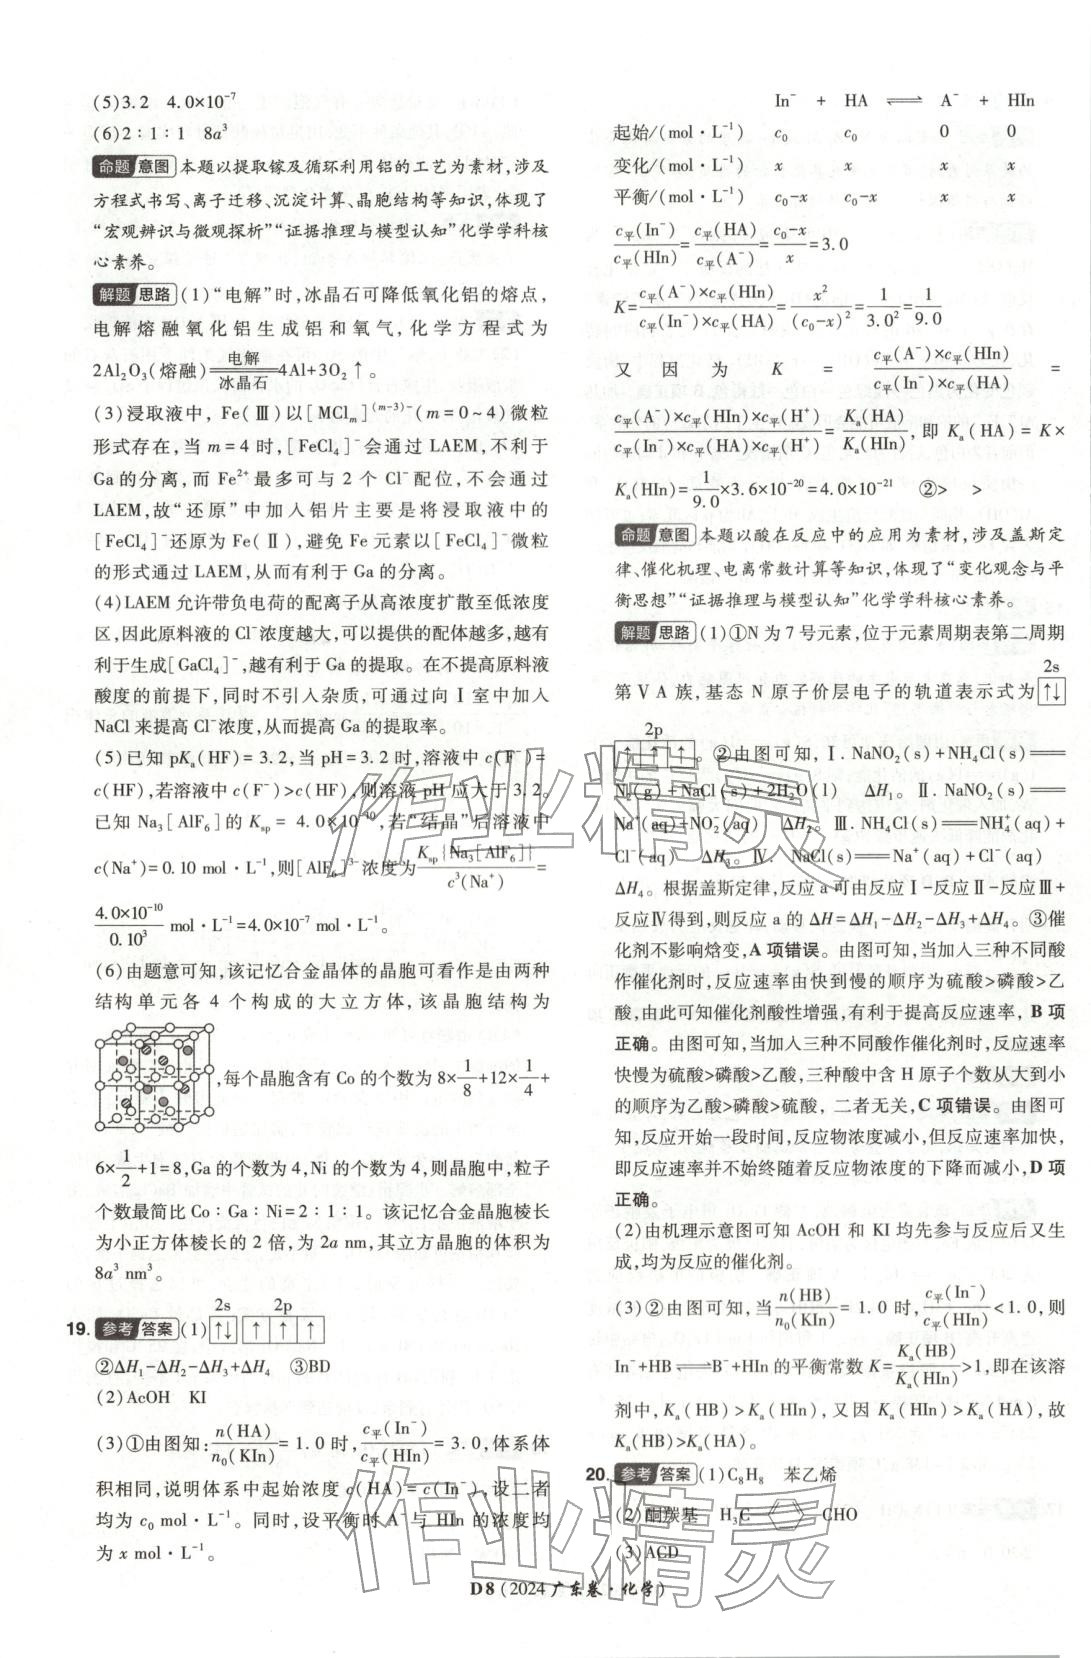 (5)3.2　4.0×10⁻⁷
(6)2∶1∶1　8a³
命题 意图 本题以提取镓及循环利用铝的工艺为素材,涉及
方程式书写、离子迁移、沉淀计算、晶胞结构等知识,体现了
“宏观辨识与微观探析”“证据推理与模型认知”化学学科核
心素养。
解题 思路 (1)“电解”时,冰晶石可降低氧化铝的熔点,
电解熔融氧化铝生成铝和氧气,化学方程式为
2Al₂O₃(熔融) ══(电解/冰晶石)══ 4Al+3O₂↑。
(3)浸取液中, Fe(Ⅲ)以[MClₘ]⁽ᵐ⁻³⁾⁻(m=0~4)微粒
形式存在,当 m=4 时,[FeCl₄]⁻会通过 LAEM,不利于
Ga的分离,而 Fe²⁺最多可与 2 个 Cl⁻配位,不会通过
LAEM,故“还原”中加入铝片主要是将浸取液中的
[FeCl₄]⁻还原为 Fe(Ⅱ),避免 Fe 元素以[FeCl₄]⁻微粒
的形式通过 LAEM,从而有利于 Ga 的分离。
(4)LAEM 允许带负电荷的配离子从高浓度扩散至低浓度
区,因此原料液的 Cl⁻浓度越大,可以提供的配体越多,越有
利于生成[GaCl₄]⁻,越有利于 Ga 的提取。在不提高原料液
酸度的前提下,同时不引入杂质,可通过向Ⅰ室中加入
NaCl 来提高 Cl⁻浓度,从而提高 Ga 的提取率。
(5)已知 pKₐ(HF)=3.2,当 pH=3.2 时,溶液中 c(F⁻)=
c(HF),若溶液中 c(F⁻)>c(HF),则溶液 pH 应大于 3.2。
已知 Na₃[AlF₆]的 Kₛₚ= 4.0×10⁻¹⁰,若“结晶”后溶液中
c(Na⁺)=0.10 mol·L⁻¹,则[AlF₆]³⁻浓度为 Kₛₚ{Na₃[AlF₆]}/c³(Na⁺) =
4.0×10⁻¹⁰/0.10³ mol·L⁻¹=4.0×10⁻⁷ mol·L⁻¹。
(6)由题意可知,该记忆合金晶体的晶胞可看作是由两种
结构单元各 4 个构成的大立方体,该晶胞结构为
,每个晶胞含有 Co 的个数为 8×1/8+12×1/4+
6×1/2+1=8,Ga 的个数为 4,Ni 的个数为 4,则晶胞中,粒子
个数最简比 Co∶Ga∶Ni=2∶1∶1。该记忆合金晶胞棱长
为小正方体棱长的 2 倍,为 2a nm,其立方晶胞的体积为
8a³ nm³。
19. 参考 答案 (1) 2s [↑↓] 2p [↑|↑|↑]
②ΔH₁-ΔH₂-ΔH₃+ΔH₄　③BD
(2)AcOH　KI
(3)①由图知: n(HA)/n₀(KIn)=1.0 时, c平(In⁻)/c平(HIn)=3.0,体系体
积相同,说明体系中起始浓度 c(HA)=c(In⁻),设二者均
为 c₀ mol·L⁻¹。同时,设平衡时 A⁻与 HIn 的浓度均
为 x mol·L⁻¹。
In⁻ + HA ⇌ A⁻ + HIn
起始/(mol·L⁻¹)　c₀　c₀　0　0
变化/(mol·L⁻¹)　x　x　x　x
平衡/(mol·L⁻¹)　c₀-x　c₀-x　x　x
c平(In⁻)/c平(HIn)=c平(HA)/c平(A⁻)=(c₀-x)/x=3.0
K=[c平(A⁻)×c平(HIn)]/[c平(In⁻)×c平(HA)]=x²/(c₀-x)²=1/3.0²=1/9.0
又因为 K = [c平(A⁻)×c平(HIn)]/[c平(In⁻)×c平(HA)] =
[c平(A⁻)×c平(HIn)×c平(H⁺)]/[c平(In⁻)×c平(HA)×c平(H⁺)]=Kₐ(HA)/Kₐ(HIn),即 Kₐ(HA)=K×
Kₐ(HIn)=1/9.0×3.6×10⁻²⁰=4.0×10⁻²¹　②>　>
命题 意图 本题以酸在反应中的应用为素材,涉及盖斯定
律、催化机理、电离常数计算等知识,体现了“变化观念与平
衡思想”“证据推理与模型认知”化学学科核心素养。
解题 思路 (1)①N 为 7 号元素,位于元素周期表第二周期
第ⅤA 族,基态 N 原子价层电子的轨道表示式为 2s [↑↓]
2p [↑|↑|↑]。②由图可知,Ⅰ. NaNO₂(s)+NH₄Cl(s)══
N₂(g)+NaCl(s)+2H₂O(l)　ΔH₁。Ⅱ. NaNO₂(s)══
Na⁺(aq)+NO₂⁻(aq)　ΔH₂。Ⅲ. NH₄Cl(s)══NH₄⁺(aq)+
Cl⁻(aq)　ΔH₃。Ⅳ. NaCl(s)══Na⁺(aq)+Cl⁻(aq)
ΔH₄。根据盖斯定律,反应 a 可由反应Ⅰ-反应Ⅱ-反应Ⅲ+
反应Ⅳ得到,则反应 a 的 ΔH=ΔH₁-ΔH₂-ΔH₃+ΔH₄。③催
化剂不影响焓变,A 项错误。由图可知,当加入三种不同酸
作催化剂时,反应速率由快到慢的顺序为硫酸>磷酸>乙
酸,由此可知催化剂酸性增强,有利于提高反应速率,B 项
正确。由图可知,当加入三种不同酸作催化剂时,反应速率
快慢为硫酸>磷酸>乙酸,三种酸中含 H 原子个数从大到小
的顺序为乙酸>磷酸>硫酸,二者无关,C 项错误。由图可
知,反应开始一段时间,反应物浓度减小,但反应速率加快,
即反应速率并不始终随着反应物浓度的下降而减小,D 项
正确。
(2)由机理示意图可知 AcOH 和 KI 均先参与反应后又生
成,均为反应的催化剂。
(3)②由图可知,当 n(HB)/n₀(KIn)=1.0 时, c平(In⁻)/c平(HIn)<1.0,则
In⁻+HB⇌B⁻+HIn 的平衡常数 K=Kₐ(HB)/Kₐ(HIn)>1,即在该溶
剂中,Kₐ(HB)>Kₐ(HIn),又因 Kₐ(HIn)>Kₐ(HA),故
Kₐ(HB)>Kₐ(HA)。
20. 参考 答案 (1)C₈H₈　苯乙烯
(2)酮羰基　H₃C CHO
(3)ACD
D8(2024 广东卷·化学)
作业精灵
作业精灵